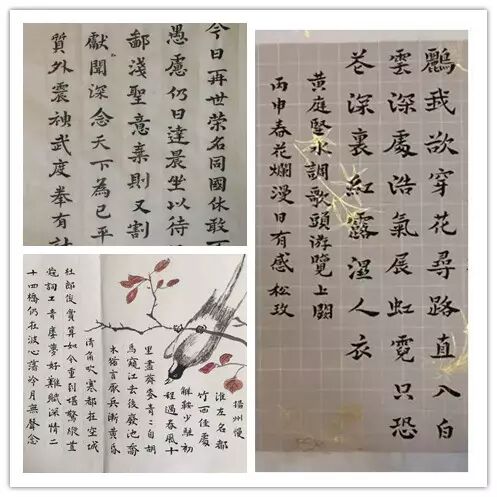 今日再世荣名同國休敢
愚慮仍日達晨坐以待
鄙淺聖意棄則又割
獻聞深念天下為已平
質外震神武度拳有
鸝我欲穿花尋路直入白
雲深處浩氣展虹霓只恐
花深裏紅露濕人衣
黄庭堅水調歌頭游覽上闋
丙申春花爛漫日有感松玫
揚州慢
淮左名都
竹西佳處
解鞍少駐初
程過春風十
里盡薺麥青二自胡
馬窺江去後廢池喬
木猶言厭兵漸黄昏
清角吹寒都在空城
杜郎俊賞算如今重到須驚縱荳
蔻詞工青樓夢好難賦深情二
十四橋仍在波心蕩冷月無聲念